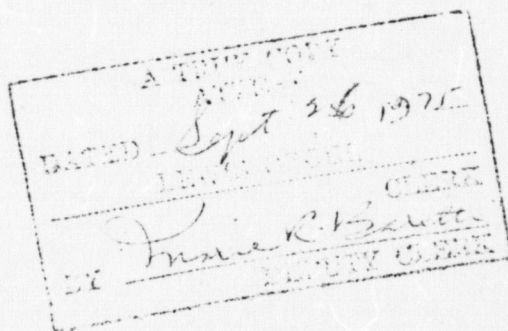 A TRUE COPY
ATTEST
DATED Sept 26 1975
CLERK
BY Marie R.
DEPUTY CLERK